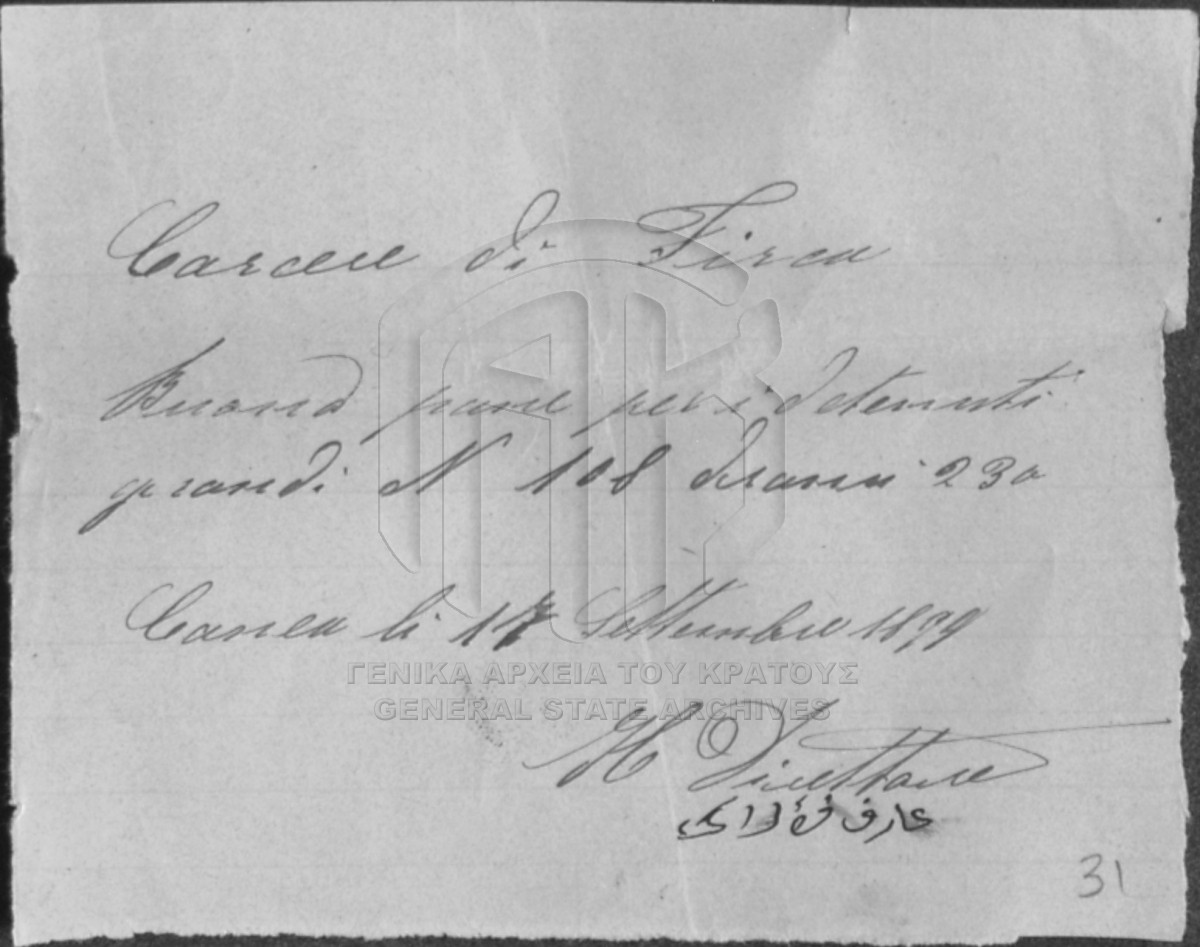 Carcere di Firca
Buono pane per i detenuti
grandi N 108 drami 230
Canea li 17 Settembre 1899
ΓΕΝΙΚΑ ΑΡΧΕΙΑ ΤΟΥ ΚΡΑΤΟΥΣ
GENERAL STATE ARCHIVES
Il Direttore
31